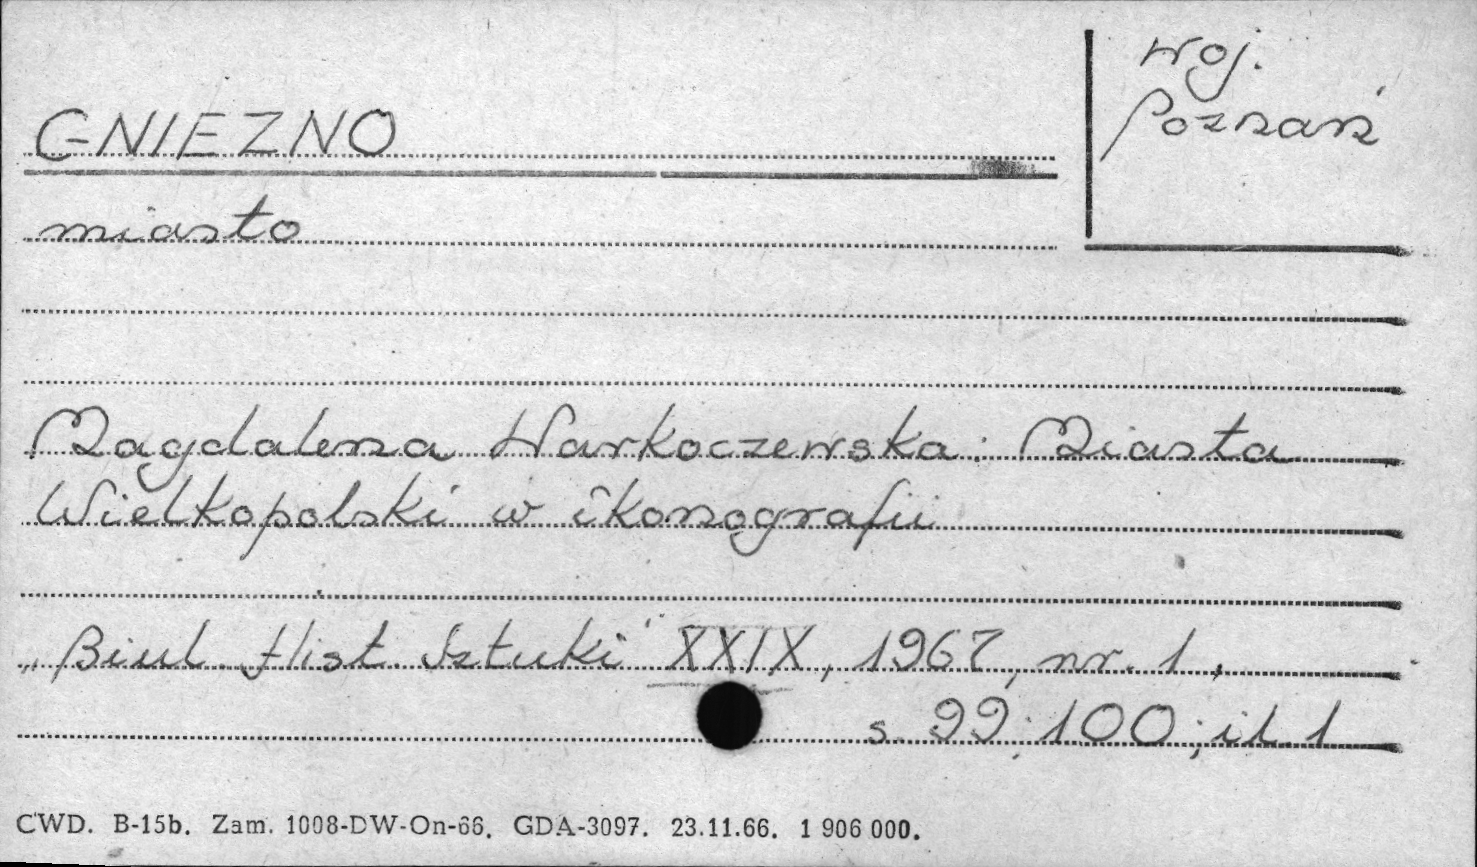 GNIEZNO
woj.
Poznań
miasto
Magdalena Warkoczewska: Miasta
Wielkopolski w ikonografii
„Biul. Hist. Sztuki" XXIX, 1967, nr. 1,
s. 99; 100; il. 1
CWD. B-15b. Zam. 1008-DW-On-66. GDA-3097. 23.11.66. 1 906 000.